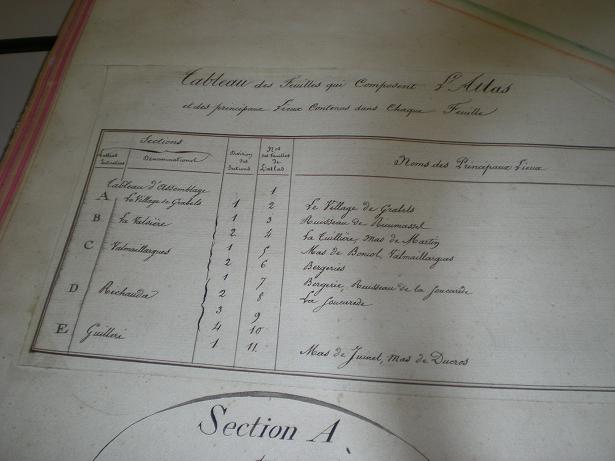 Tableau des Feuilles qui Composent L'Atlas
et des principaux Lieux Contenus dans Chaque Feuille
Sections
Dénominations
Division des Sections
Nos des Feuilles de L'atlas
Noms des Principaux Lieux
Tableau d'Assemblage 1
A Le Village de Grabels 1 2 Le Village de Grabels
B La Valsière 1 3 Ruisseau de Rieumassel
2 4 La Tuillière, Mas de Martin
C Valmaillargues 1 5 Mas de Boniol, Valmaillargues
2 6 Bergeries
D Richauda 1 7 Bergerie, Ruisseau de la
2 8
3 9
4 10
E 1 11 Mas de, Mas de Ducros
Section A